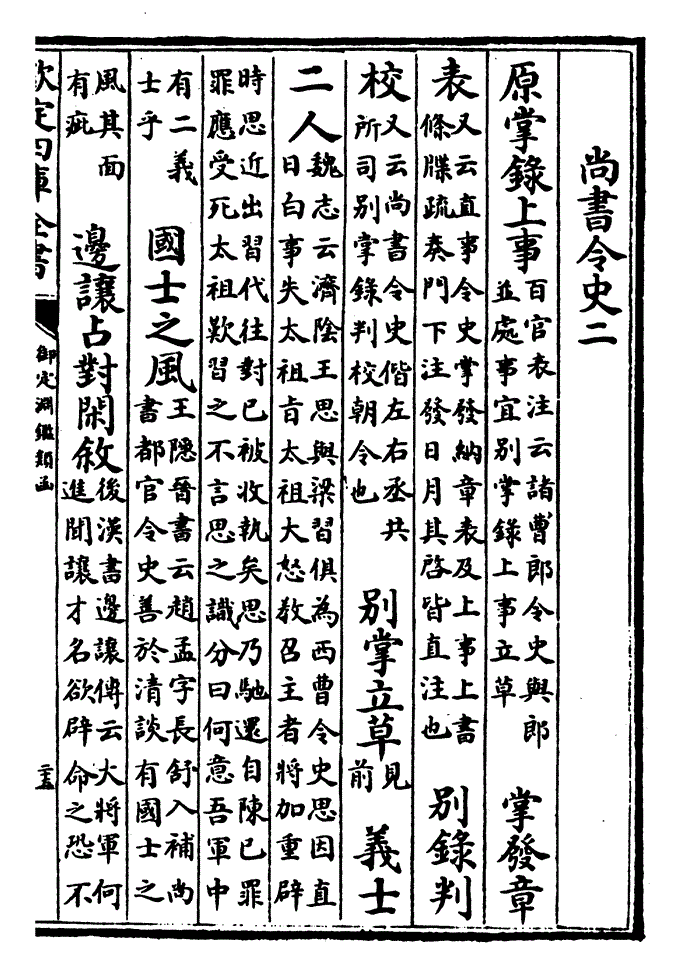 尚書令史二
原掌錄上事百官表注云諸曹郎令史與郎並處事宜别掌錄上事立草 掌發章
表又云直事令史掌發納章表及上事上書條牒疏奏門下注發日月其啓皆直注也 别錄判
校又云尚書令史偕左右丞共所司别掌錄判校朝令也 别掌立草見前 義士
二人魏志云濟陰王思與梁習俱為西曹令史思因直日白事失太祖㫖太祖大怒教召主者將加重辟
時思近出習代往對已被收執矣思乃馳還自陳已罪罪應受死太祖歎習之不言思之識分曰何意吾軍中
有二義士乎 國士之風王隠晉書云趙孟字長舒入補尚書都官令史善於清談有國士之
風其面有疵 邊讓占對閑敘後漢書邊讓傳云大將軍何進聞讓才名欲辟命之恐不
欽定四庫全書
御定淵鑑類函